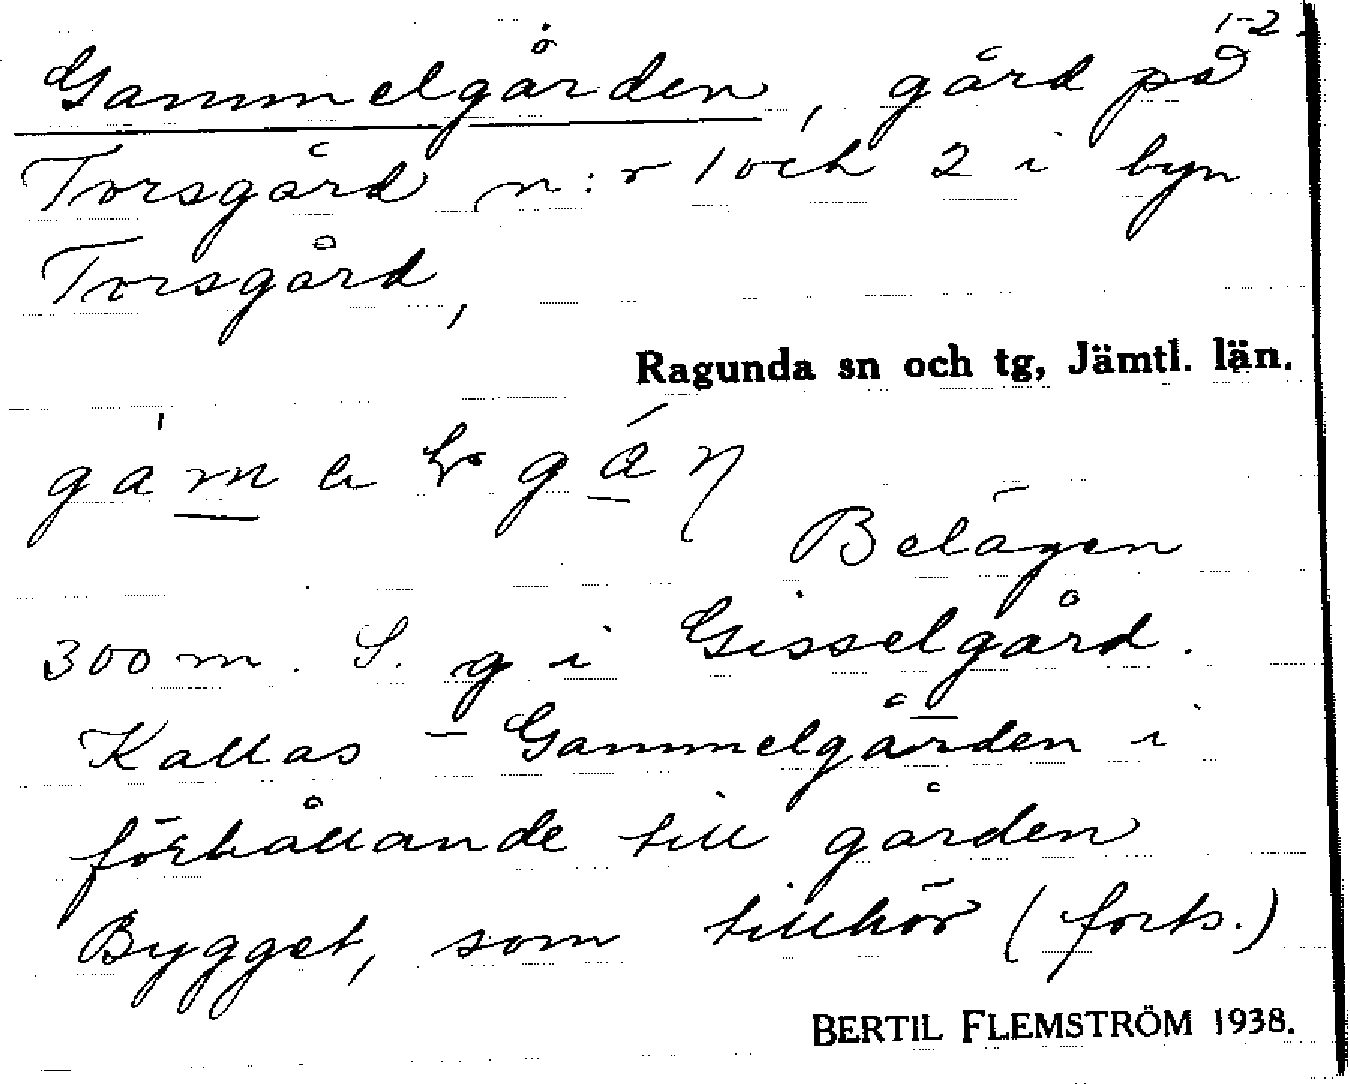 1-2
Gammelgården, gård på
Torsgård n:r 1 och 2 i byn
Torsgård,
Ragunda sn och tg, Jämtl. län.
Belägen
300 m. S. g i Gisselgård.
Kallas Gammelgården i
förhållande till gården
Bygget, som tillhör (forts.)
BERTIL FLEMSTRÖM 1938.